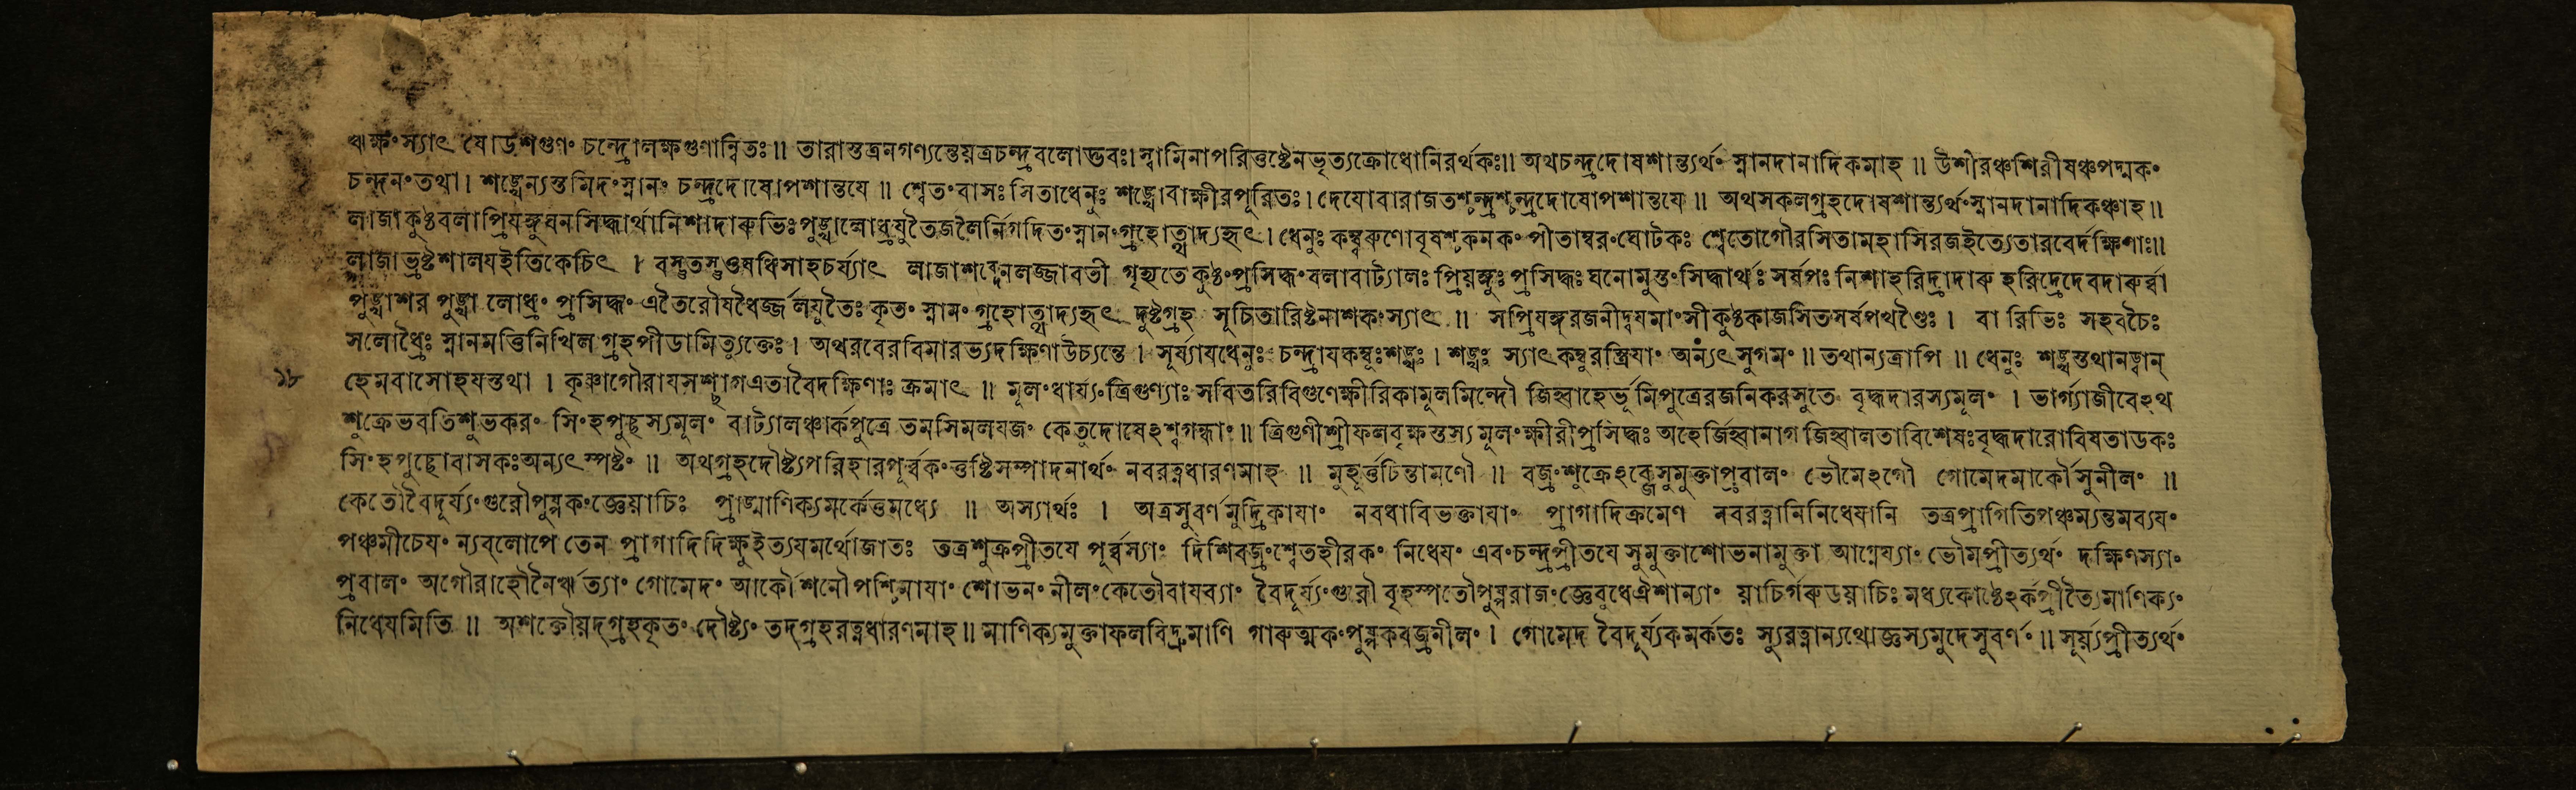 ঋক্ষং স্যাৎ ষোডশগুণং চন্দ্রোলক্ষগুণান্বিতঃ ॥ তারাস্তত্রনগণ্যন্তেয়ত্রচন্দ্রবলোদ্ভবঃ। স্বামিনাপরিত্তষ্টেনভৃত্যক্রোধোনিরর্থকঃ॥ অথচন্দ্রদোষশান্ত্যর্থং স্নানদানাদিকমাহ ॥ উশীরঞ্চশিরীষঞ্চপদ্মকং
চন্দনং তথা। শঙ্খেন্যস্তমিদং স্নানং চন্দ্রদোষোপশান্তযে ॥ শ্বেতং বাসঃ সিতাধেনুঃ শঙ্খোবাক্ষীরপূরিতঃ। দেযোবারাজতশ্চন্দ্রশ্চন্দ্রদোষোপশান্তযে ॥ অথসকলগ্রহদোষশান্ত্যর্থং স্নানদানাদিকঞ্চাহ॥
লাজাকুষ্ঠবলাপ্রিযঙ্গুঘনসিদ্ধার্থানিশাদারুভিঃপুঙ্খালোধ্রযুতৈজলৈর্নিগদিতং স্নানংগ্রহোত্থাদ্যহৃৎ। ধেনুঃ কম্ব্বরুণোবৃষশ্চকনকং পীতাম্বরং ঘোটকঃ শ্বেতোগৌরসিতামহাসিরজইত্যেতারবের্দক্ষিণাঃ॥
লাজাভ্রষ্টশালযইতিকেচিৎ । বস্তুতস্তুওষধিসাহচর্য্যাৎ লাজাশব্দেনলজ্জাবতী গৃহ্যতে কুষ্ঠংপ্রসিদ্ধং বলাবাট্যালঃ প্রিয়ঙ্গুঃ প্রসিদ্ধঃ ঘনোমুস্তং সিদ্ধার্থঃ সর্ষপঃ নিশাহরিদ্রাদারু হরিদ্রেদেবদারুর্ব্বা
পুঙ্খাশর পুঙ্খা লোধ্রং প্রসিদ্ধং এতৈরৌষধৈর্জ্জলযুতৈঃ কৃতং স্নানং গ্রহোত্থাদ্যহৃৎ দুষ্টগ্রহ সূচিতারিষ্টনাশকংস্যাৎ ॥ সপ্রিযঙ্গরজনীদ্বযমাংসীকুষ্ঠকাজসিতসর্ষপথণ্ডৈঃ । বা রিভিঃ সহবচৈঃ
সলোধ্রৈঃ স্নানমত্তিনিখিল গ্রহপীডামিত্যুক্তেঃ। অথরবেরবিমারভ্যদক্ষিণাউচ্যন্তে । সূর্য্যাযধেনুঃ চন্দ্রাযকম্বূঃশঙ্খঃ । শঙ্খঃ স্যাৎকম্বুরস্ত্রিযাং অন্যৎসুগমং ॥ তথান্যত্রাপি ॥ ধেনুঃ শঙ্খস্তথানড্বান্
১৮
হেমবাসোহযস্তথা । কৃষ্ণাগৌরাযসশ্ছাগএতাবৈদক্ষিণাঃ ক্রমাৎ ॥ মূলংধার্য্যংত্রিগুণ্যাঃ সবিতরিবিগুণেক্ষীরিকামূলমিন্দৌ জিহ্বাহের্ভূমিপুত্রেরজনিকরসুতে বৃদ্ধদারস্যমূলং । ভার্গ্যাজীবেঽথ
শুক্রেভবতিশুভকরং সিংহপুচ্ছস্যমূলং বাট্যালঞ্চার্কপুত্রে তমসিমলযজং কেতুদোষেঽশ্বগন্ধাং ॥ ত্রিগুণীশ্রীফলবৃক্ষস্তস্য মূলংক্ষীরীপ্রসিদ্ধঃ অহের্জিহ্বানাগ জিহ্বালতাবিশেষঃ বৃদ্ধদারোবিষতাডকঃ
সিংহপুচ্ছোবাসকঃঅন্যৎ স্পষ্টং ॥ অথগ্রহদৌষ্ট্যপরিহারপূর্ব্বকংত্তষ্টিসম্পাদনার্থং নবরত্নধারণমাহ ॥ মুহূর্ত্তচিন্তামণৌ ॥ বজ্রংশুক্রেঽব্জেসুমুক্তাপ্রবালং ভৌমেঽগৌ গোমেদমার্কৌসুনীলং ॥
কেতৌবৈদূর্য্যংগুরৌপুষ্পকংজ্ঞেয়াচিঃ প্রাঙ্মাণিক্যমর্কেত্তমধ্যে ॥ অস্যার্থঃ । অত্রসুবর্ণমুদ্রিকাযাং নবধাবিভক্তাযাং প্রাগাদিক্রমেণ নবরত্নানিনিধেযানি তত্রপ্রাগিতিপঞ্চম্যন্তমব্যযং
পঞ্চমীচেযং ন্যব্লোপে তেন প্রাগাদিদিক্ষুইত্যযমর্থোজাতঃ তত্রশুক্রপ্রীতযে পূর্ব্বস্যাং দিশিবজ্রংশ্বেতহীরকং নিধেযং এবংচন্দ্রপ্রীতযে সুমুক্তাশোভনামুক্তা আগ্নেয্যাং ভৌমপ্রীত্যর্থং দক্ষিণস্যাং
প্রবালং অগৌরাহৌনৈরৃত্যাং গোমেদং আর্কৌশনৌ পশ্চিমাযাং শোভনংনীলংকেতৌবাযব্যাং বৈদূর্য্যংগুরৌ বৃহস্পতৌপুষ্পরাজংজ্ঞেবুধেঐশান্যাং য়াচির্গরুডয়াচিঃ মধ্যকোষ্ঠেঽর্কপ্রীত্যৈমাণিক্যং
নিধেযমিতি ॥ অশক্তৌয়দ্গ্রহকৃতং দৌষ্ট্যং তদ্গ্রহরত্নধারণমাহ ॥ মাণিক্যমুক্তাফলবিদ্রুমাণি গারুত্মকংপুষ্পকবজ্রনীলং । গোমেদ বৈদূর্য্যকমর্কতঃ স্যুরত্নান্যথোজ্ঞস্যমুদেসুবর্ণং ॥ সূর্য়্যপ্রীত্যর্থং